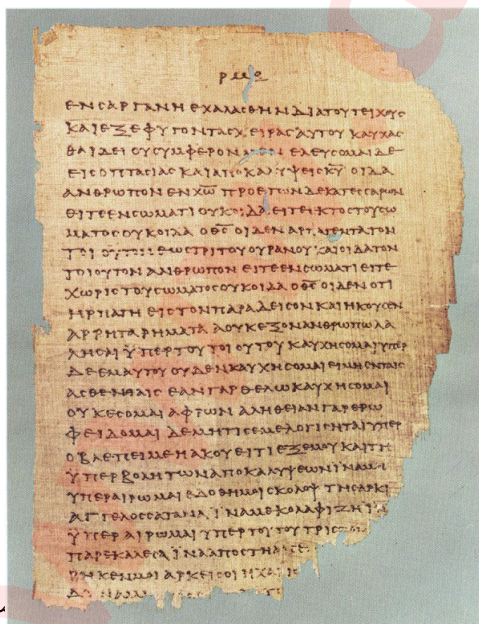 ΡΜΘ
ΕΝ ΣΑΡΓΑΝΗ ΕΧΑΛΑΣΘΗΝ ΔΙΑ ΤΟΥ ΤΕΙΧΟΥΣ
ΚΑΙ ΕΞΕΦΥΓΟΝ ΤΑΣ ΧΕΙΡΑΣ ΑΥΤΟΥ ΚΑΥΧΑΣ
ΘΑΙ ΔΕΙ ΟΥ ΣΥΜΦΕΡΟΝ ΕΛΕΥΣΟΜΑΙ ΔΕ
ΕΙΣ ΟΠΤΑΣΙΑΣ ΚΑΙ ΑΠΟΚΑΛΥΨΕΙΣ ΚΥ ΟΙΔΑ
ΑΝΘΡΩΠΟΝ ΕΝ ΧΩ ΠΡΟ ΕΤΩΝ ΔΕΚΑΤΕΣΣΑΡΩΝ
ΕΙΤΕ ΕΝ ΣΩΜΑΤΙ ΟΥΚ ΟΙΔΑ ΕΙΤΕ ΕΚΤΟΣ ΤΟΥ ΣΩ
ΜΑΤΟΣ ΟΥΚ ΟΙΔΑ Ο ΘΣ ΟΙΔΕΝ ΑΡΠΑΓΕΝΤΑ ΤΟΝ
ΤΟΙΟΥΤΟΝ ΕΩΣ ΤΡΙΤΟΥ ΟΥΡΑΝΟΥ ΚΑΙ ΟΙΔΑ ΤΟΝ
ΤΟΙΟΥΤΟΝ ΑΝΘΡΩΠΟΝ ΕΙΤΕ ΕΝ ΣΩΜΑΤΙ ΕΙΤΕ
ΧΩΡΙΣ ΤΟΥ ΣΩΜΑΤΟΣ ΟΥΚ ΟΙΔΑ Ο ΘΣ ΟΙΔΕΝ ΟΤΙ
ΗΡΠΑΓΗ ΕΙΣ ΤΟΝ ΠΑΡΑΔΕΙΣΟΝ ΚΑΙ ΗΚΟΥΣΕΝ
ΑΡΡΗΤΑ ΡΗΜΑΤΑ Α ΟΥΚ ΕΞΟΝ ΑΝΘΡΩΠΩ ΛΑ
ΛΗΣΑΙ ΫΠΕΡ ΤΟΥ ΤΟΙΟΥΤΟΥ ΚΑΥΧΗΣΟΜΑΙ ΫΠΕΡ
ΔΕ ΕΜΑΥΤΟΥ ΟΥΔΕΝ ΚΑΥΧΗΣΟΜΑΙ ΕΙ ΜΗ ΕΝ ΤΑΙΣ
ΑΣΘΕΝΕΙΑΙΣ ΕΑΝ ΓΑΡ ΘΕΛΩ ΚΑΥΧΗΣΟΜΑΙ
ΟΥΚ ΕΣΟΜΑΙ ΑΦΡΩΝ ΑΛΗΘΕΙΑΝ ΓΑΡ ΕΡΩ
ΦΕΙΔΟΜΑΙ ΔΕ ΜΗ ΤΙΣ ΕΜΕ ΛΟΓΙΣΗΤΑΙ ΥΠΕΡ
Ο ΒΛΕΠΕΙ ΜΕ Η ΑΚΟΥΕΙ ΤΙ ΕΞ ΕΜΟΥ ΚΑΙ ΤΗ
ΫΠΕΡΒΟΛΗ ΤΩΝ ΑΠΟΚΑΛΥΨΕΩΝ ΪΝΑ ΜΗ
ΥΠΕΡΑΙΡΩΜΑΙ ΕΔΟΘΗ ΜΟΙ ΣΚΟΛΟΨ ΤΗ ΣΑΡΚΙ
ΑΓΓΕΛΟΣ ΣΑΤΑΝΑ ΪΝΑ ΜΕ ΚΟΛΑΦΙΖΗ ΪΝΑ
ΫΠΕΡΑΙΡΩΜΑΙ ΥΠΕΡ ΤΟΥΤΟΥ ΤΡΙΣ
ΠΑΡΕΚΑΛΕΣΑ ΪΝΑ ΑΠΟΣΤΗ
ΡΗΚΕΝ ΜΟΙ ΑΡΚΕΙ ΣΟΙ Η ΧΑΡΙΣ